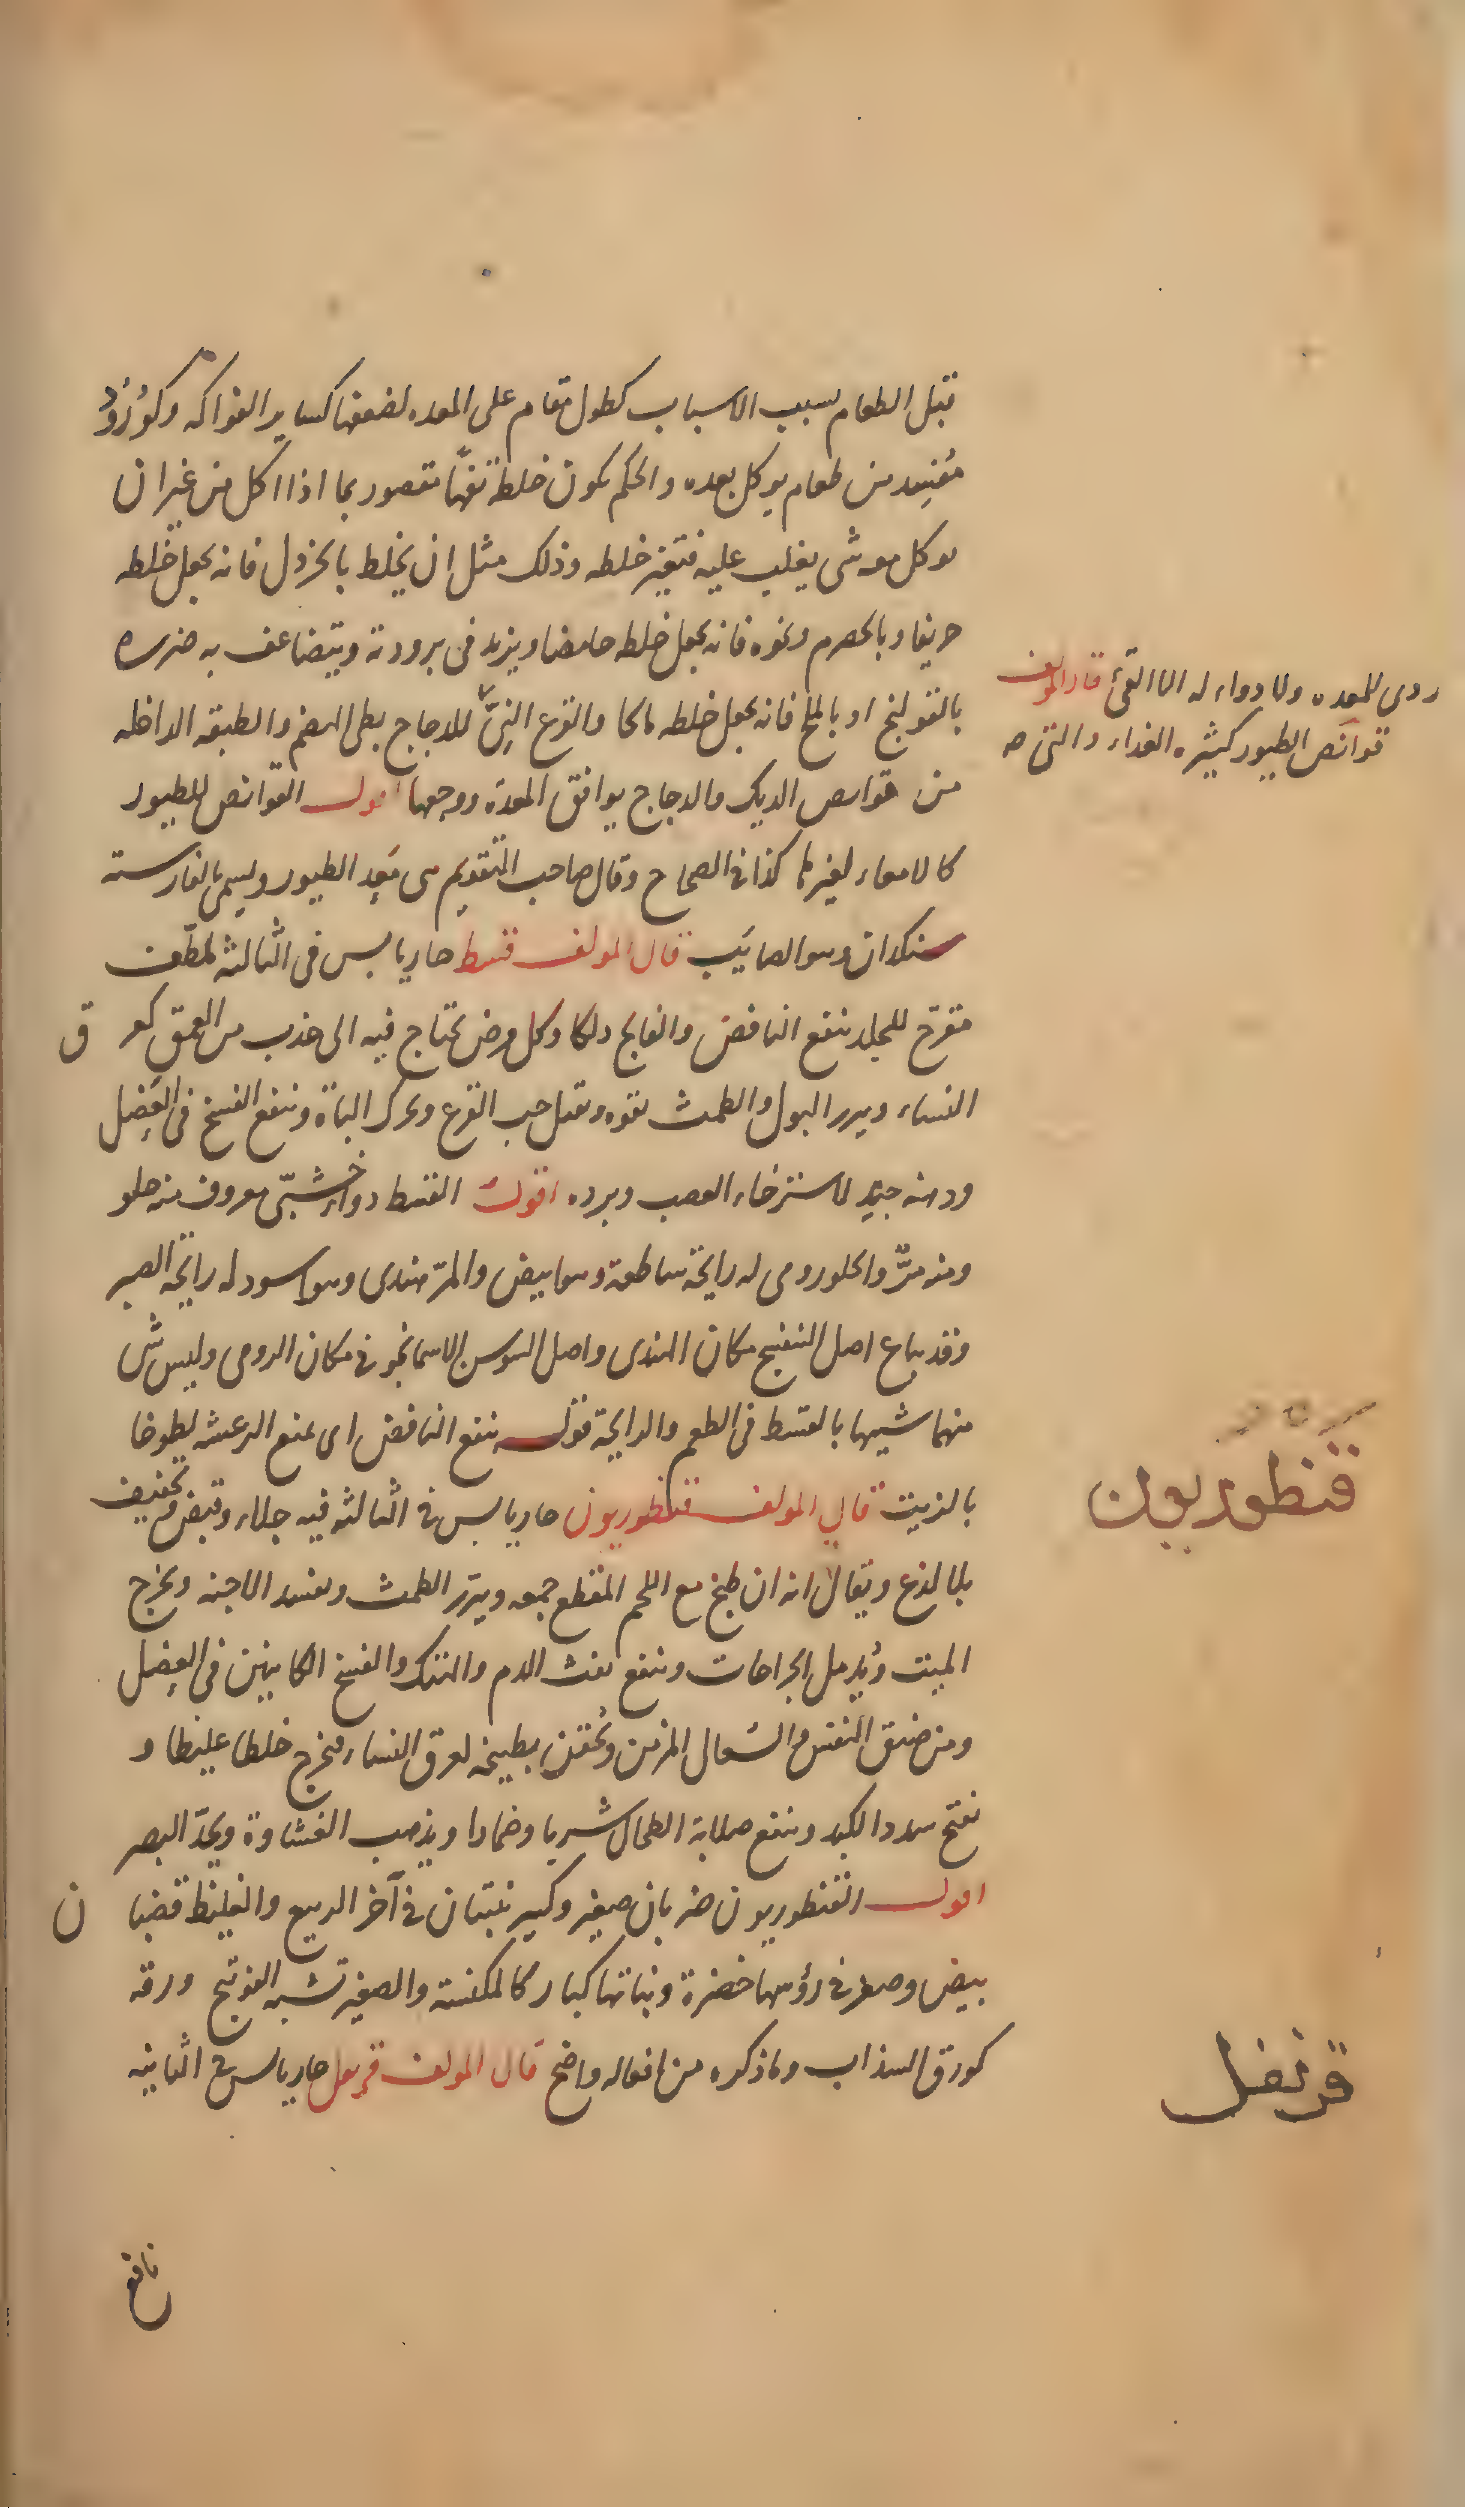 قبل الطعام بسبب الاسباب كطول مقام على المعده لضعفها كساير الفواكه وكورُوْد
مُفسِد من طعام يوكل بعده والحكم بكون خلطه تفهًا متصور بما اذا اكل من غير ان
يوكل معه شى يغلب عليه فتغير خلطه وذلك مثل ان يخلط بالخردل فانه يجعل خلطه
حريفا وبالحصرم ونحوه فانه يجعل خلطه حامضا ويزيد فى برودته ويتضاعف به ضرره
بالقولنج او بالملح فانه يجعل خلطه مالحا والقرع النِىُّ للدجاج بطى الهضم والطبقه الداخله
من قوانص الديك والدجاج يوافق المعدة ووجعها اقول القوانص للطيور
كالامعاء لغيرها كذا فى الصحاح وقال صاحب التقويم هى مَعِد الطيور ويسمى بالفارسية
سنكدان وهو الصايَب قال المولف قسط حار يابس فى الثالثه ملطّف
مقرّح للجلد ينفع النافض والفالج دلكا وكل مرض يحتاج فيه الى جذب من العمق كعرق
النساء ويدر البول والطمث بقوه ويقتل حب القرع ويحرك الباة وينفع الفسخ فى العَضِل
ودهنه جيّد لاسترخاء العصب وبرده اقول القسط دواء خشبّى معروف منه حلو
ومنه مرٌّ والحلو رومى له رايحة ساطعة وهو ابيض والمرّ هندى وهو اسود له رايحة الصبر
وقد يباع اصل البنفسج مكان الهندى واصل السوسن الاسمانجونى مكان الرومى وليس شى
منهما شبيها بالقسط فى الطعم والرايحة قوله ينفع النافض اى يمنع الرعشه لطوخا
بالزيت قال المولف قنطوريون حار يابس فى الثالثه فيه جلاء وقبض وتجفيف
بلا لذع ويقال انه ان طبخ مع اللحم المقطع جمعه ويدّر الطمث ويفسد الاجنه ويخرج
الميت ويُدمل الجراحات وينفع نفث الدم والهتك والفسخ الكاينين فى العضل
ومن ضيق النفس والسُعال المزمن ويُحقن بطبيخه لعرق النساء فيخرج خلطا غليظا و
يفتح سدد الكبد وينفع صلابة الطحال شربا وضمادا ويذهب الغشاوة ويحدّ البصر
اقول القنطوريون ضربان صغير وكبير ينبتان فى آخر الربيع والغليظ قضبان
بيض وصفر فى رؤسها خضرة ونباتها كبار كالمكنسة والصغير تشبه الفوتنج ورقه
كورق السذاب وما ذكره من افعاله واضح قال المولف قرنفل حار يابس فى الثانيه
نافع
ردى للمعده ولا دواء له الا القىء قال المولف
قوانَص الطيور كثيره الغداء والتى
قنطوريون
قرنفل